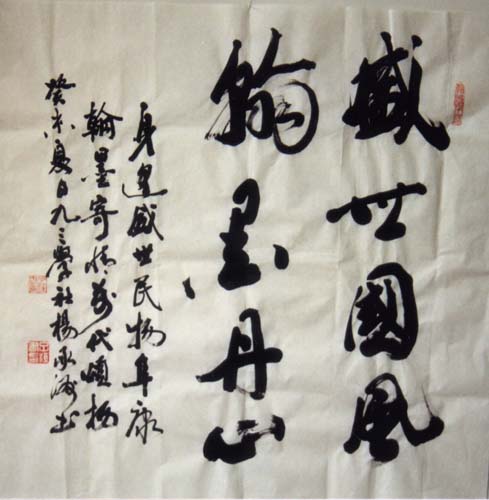 盛世國風
翰墨丹山
身逢盛世民物阜康
翰墨寄情萬代頌揚
癸未夏日九三學社楊承海書